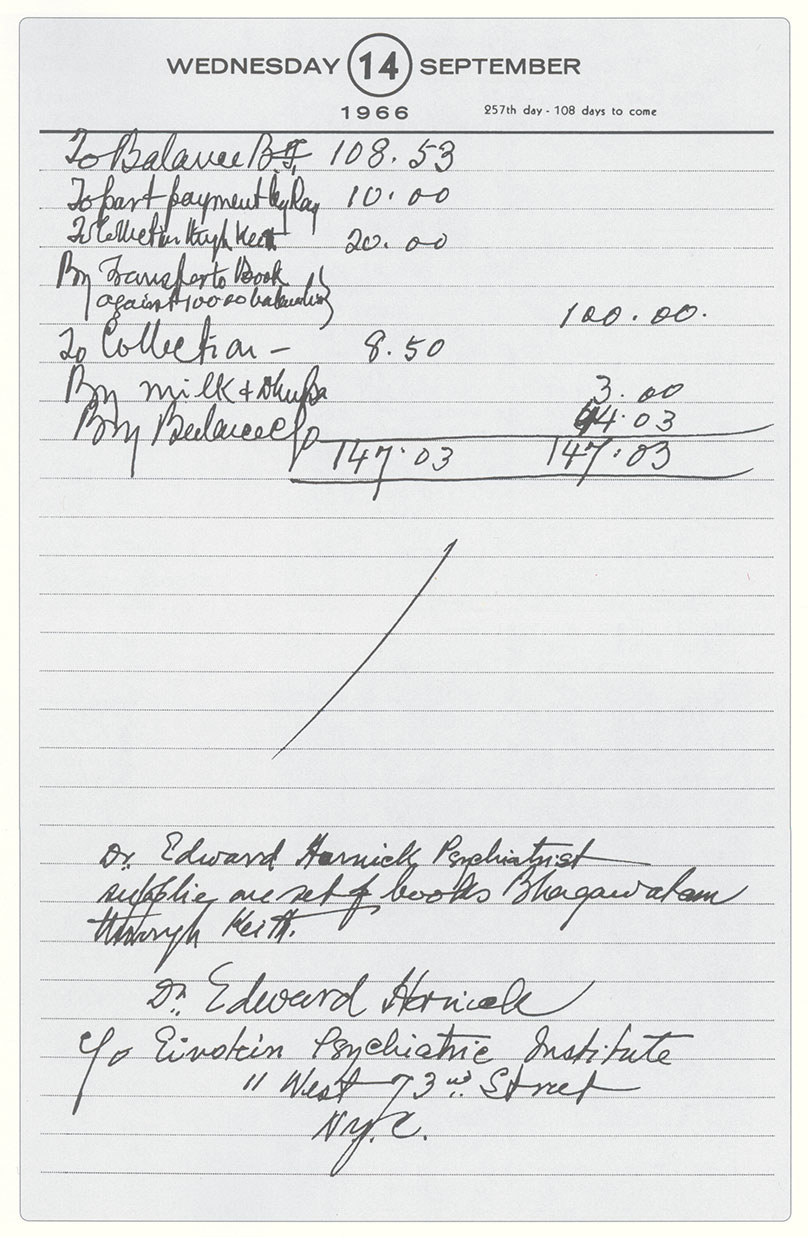 WEDNESDAY 14 SEPTEMBER
1966 257th day - 108 days to come
To Balance B.F. 108.53
To part payment by Ray 10.00
To Collection Hugh Keith 20.00
By Transfer to Book
against 100.00 100.00.
To Collection — 8.50
By milk + Dhupa 3.00
By Balance c/o 44.03
147.03 147.03
Dr. Edward Hornick Psychiatrist
supplied one set of books Bhagawatam
through Keith.
Dr. Edward Hornick
C/o Einstein Psychiatric Institute
11 West 73rd Street
N.Y.C.